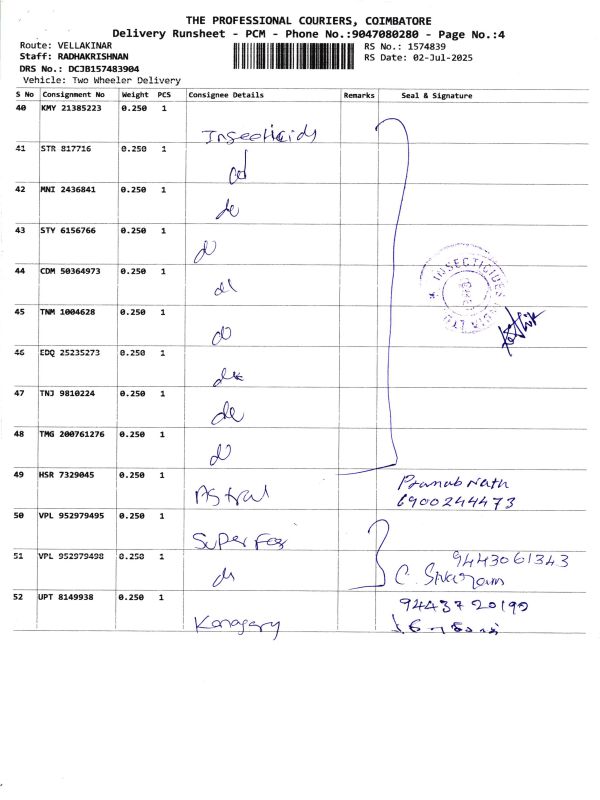 THE PROFESSIONAL COURIERS, COIMBATORE
Delivery Runsheet - PCM - Phone No.:9047080280 - Page No.:4
Route: VELLAKINAR
RS No.: 1574839
Staff: RADHAKRISHNAN
RS Date: 02-Jul-2025
DRS No.: DCJB157483904
Vehicle: Two Wheeler Delivery
S No Consignment No Weight PCS Consignee Details Remarks Seal & Signature
40 KMY 21385223 0.250 1
Insecticids
41 STR 817716 0.250 1
42 MNI 2436841 0.250 1
do
43 STY 6156766 0.250 1
do
44 CDM 50364973 0.250 1
INSECTICIDES INDIA LTD
45 TNM 1004628 0.250 1
do
46 EDQ 25235273 0.250 1
47 TNJ 9810224 0.250 1
do
48 TMG 200761276 0.250 1
do
49 HSR 7329045 0.250 1
Astral
Pranab Nath
6900244473
50 VPL 952979495 0.250 1
Super Fos
51 VPL 952979498 0.250 1
9443061343
C. Sivaram
52 UPT 8149938 0.250 1
9443720190